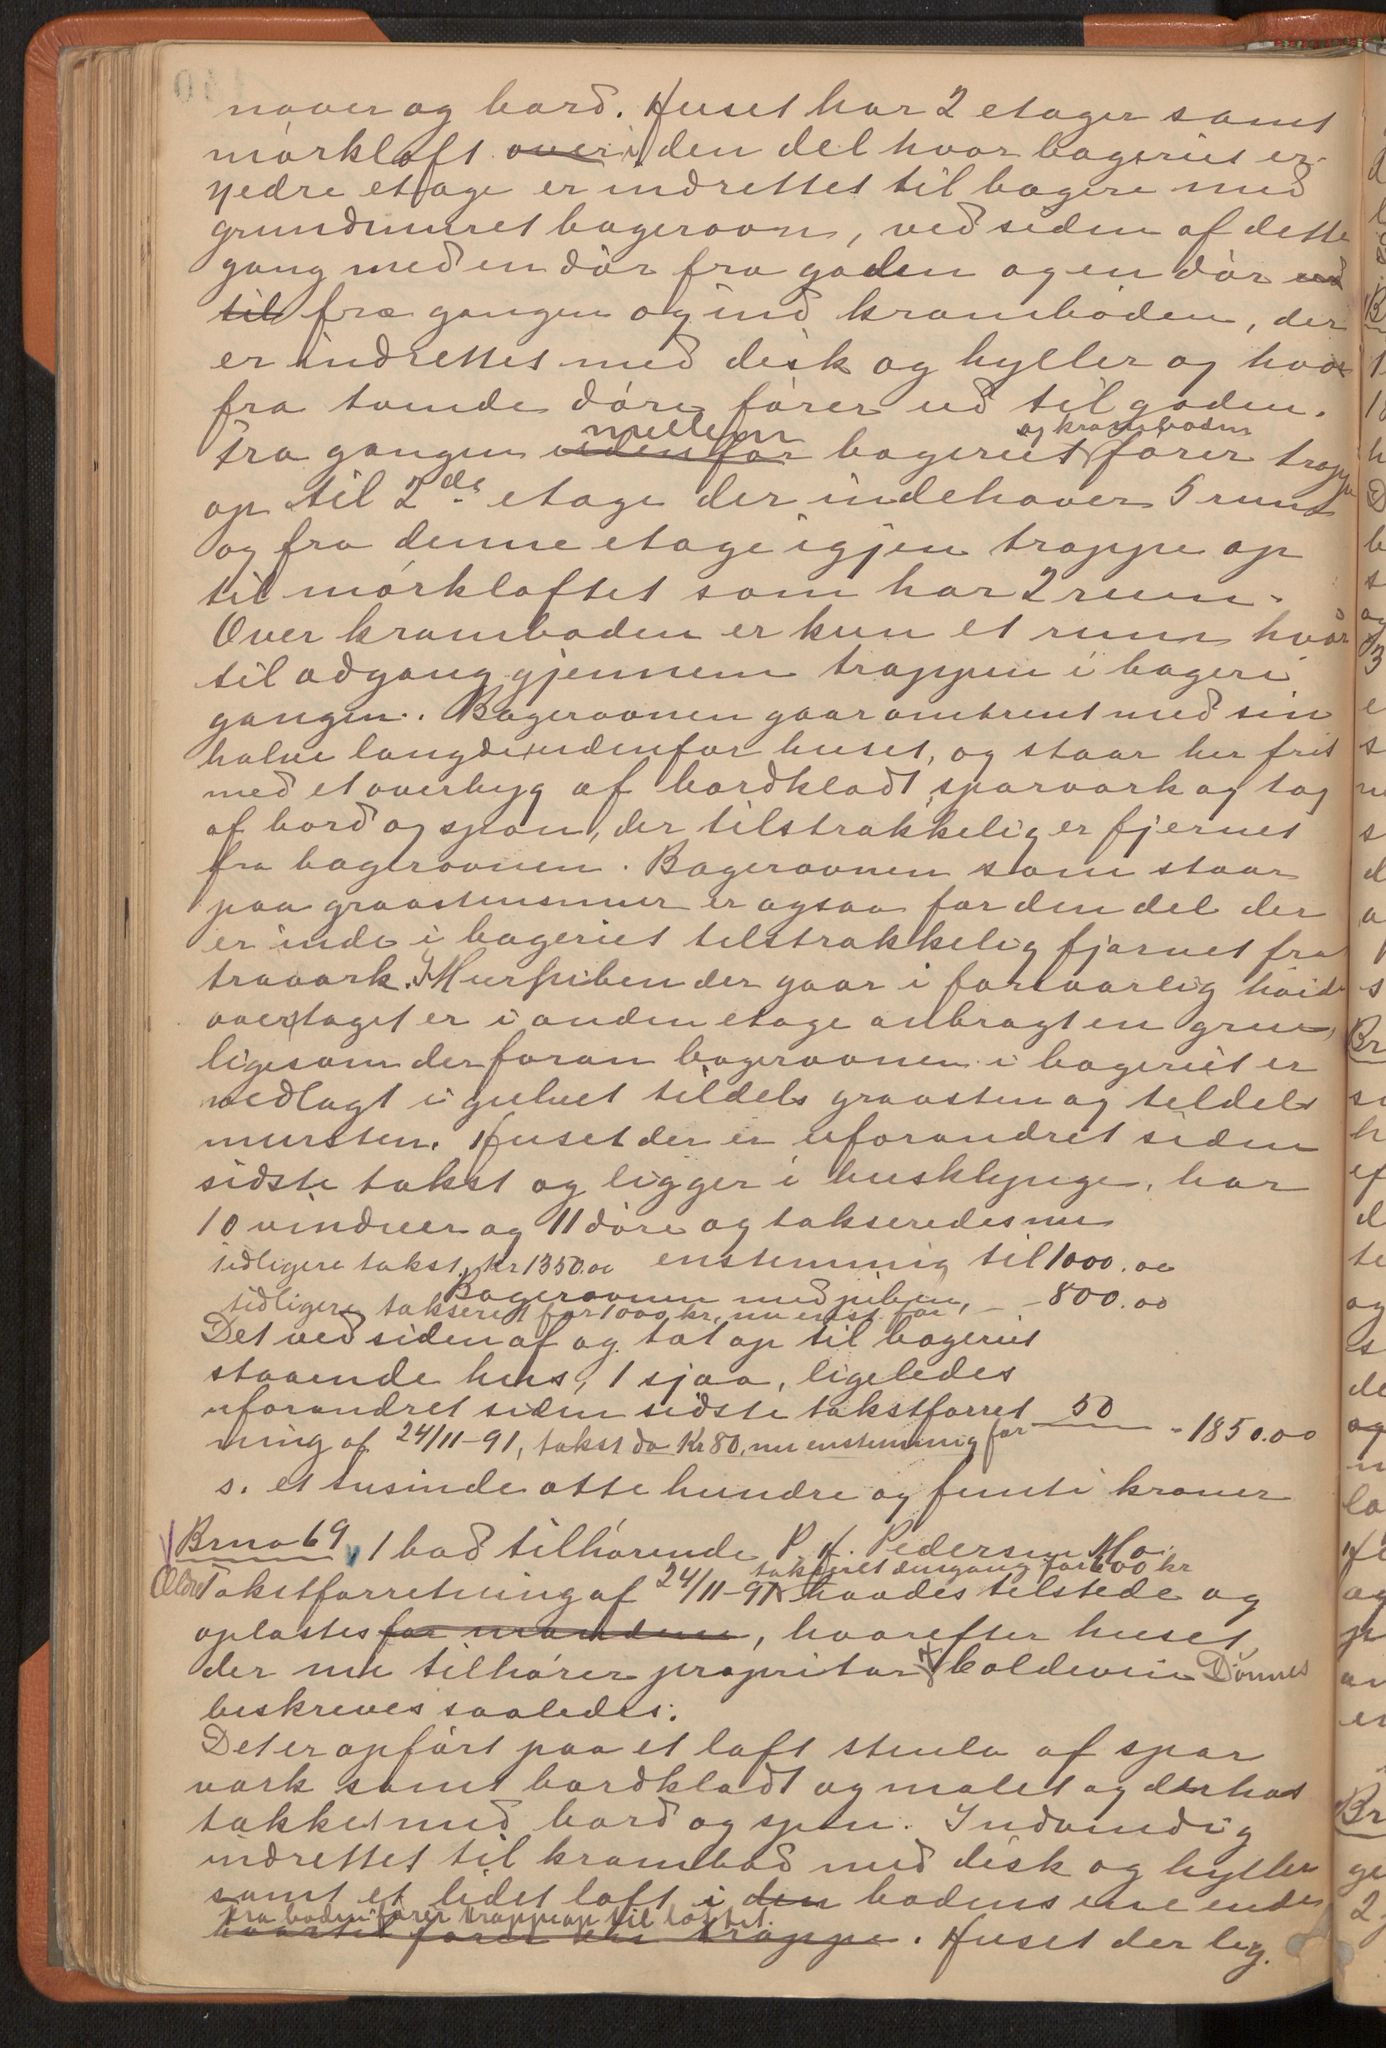 nover og bord. Huset har 2 etager samt
mørkloft over i den del hvor bageriet er.
Nedre etage er indrettet til bageri med
grundmuret bagerovn, ved siden af dette
gang med en dør fra gaden og en dør ud
til fra gangen og ind kramboden, der
er indrettet med disk og hyller og hvor
fra tvende døre fører ud til gaden.
mellem og kramboden
Fra gangen udenfor bageriet fører trappe
op til 2de etage der indehaver 5 rum
og fra denne etage igjen trappe op
til mørkloftet som har 2 rum.
Over kramboden er kun et rum hvor
til adgang gjennem trappen i bageri
gangen. Bagerovnen gaar omtrent med sin
halve længde udenfor huset, og staar her frit
med et overbyg af bordklædt sparværk og tag
af bord og spon, der tilstrækkelig er fjernet
fra bagerovnen. Bagerovnen som staar
paa graastensmur er ogsaa for den del der
er inde i bageriet tilstrækkelig fjærnet fra
træværk. I Murpiben der gaar i forsvarlig høide
over taget er i anden etage anbragt en grue,
ligesom der foran bagerovnen i bageriet er
nedlagt i gulvet tildels graasten og tildels
mursten. Huset der er uforandret siden
sidste takst og ligger i husklynge, har
10 vinduer og 11 døre og takseredes nu
tidligere takst kr 1350.00 enstemmig til 1000.00
Bagerovnen med piben, - - 800.00
tidligere takseret for 1000 kr, nu enst. for
Det ved siden af og tæt op til bageriet
staaende hus, 1 sjaa, ligeledes
uforandret siden sidste takstforret
ning af 24/11-91, takst da Kr 80, nu enstemmig for 50 - 1850.00
s. et tusinde otte hundre og femti kroner
Brno 69, 1 bod tilhørende P. H. Pedersen Mo.
takseret dengang for 600 kr
Takstforretning af 24/11-91 havdes tilstede og
oplæstes for mændene, hvorefter huset
der nu tilhører propritær Coldevin Dønnes
beskreves saaledes:
Det er opført paa et laft stenla af spar
værk samt bordklædt og malet og derhos
tækket med bord og spon. Indvendig
indrettet til krambod med disk og hyller
samt et lidet loft i den bodens ene ende
Fra boden fører trappe op til loftet.
hvortil fører en trappe. Huset der lig.